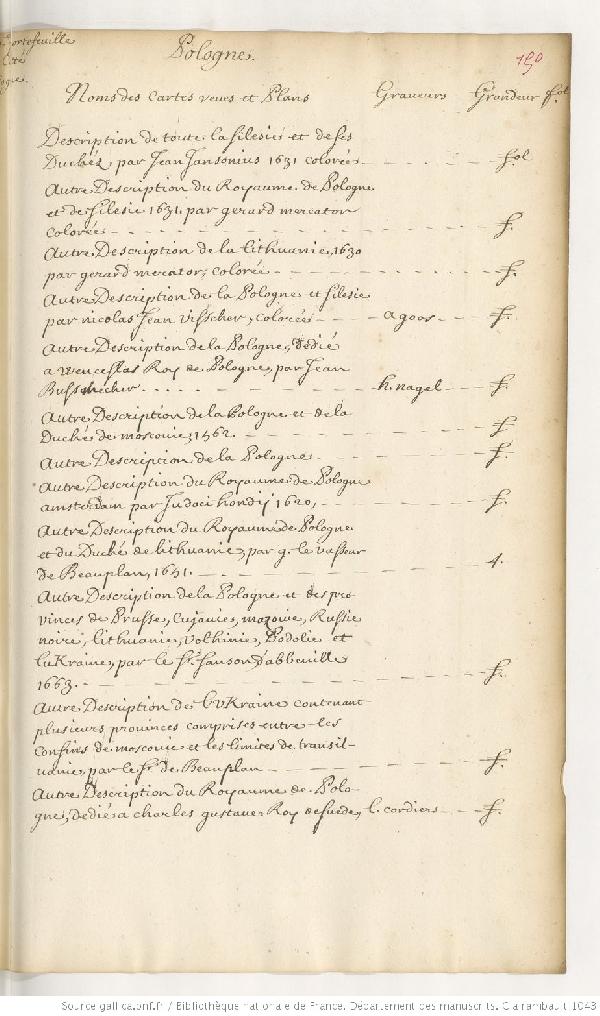 Portefeuille
Coté
Pologne.
190
Noms des Cartes veues et Plans Graveurs Grandeur fol.
Description de toute la silesie et de ses
Duchéz par Jean Jansonius 1631 colorée fol.
Autre Description du Royaume de Pologne
et de silesie 1631. par gerard mercator
colorée f.
Autre Description de la lithuanie, 1630
par gerard mercator, colorée f.
Autre Description de la Pologne et silesie
par nicolas Jean visscher, colorée a goos f.
Autre Description de la Pologne, dedié
a wenceslas Roy de Pologne, par Jean
h. nagel f.
Autre Description de la Pologne et de la
Duché de moscovie, 1562. f.
Autre Description de la Pologne f.
Autre Description du Royaume de Pologne
amsterdam par Judoci hondij 1620, f.
Autre Description du Royaume de Pologne
et du Duché de lithuanie, par g. le vasseur
de Beauplan, 1651. 4.
Autre Description de la Pologne et des pro-
vinces de Prusse, Cujavie, mazovie, Russie
noire, lithuanie, volhinie, Podolie et
lukraine, par le sr. sanson d'abbeville
1663. f.
Autre Description de l'vkraine contenant
plusieurs provinces comprises entre les
confins de moscovie et les limites de transil-
vanie, par le sr. de Beauplan f.
Autre Description du Royaume de Polo-
gne, dedié a charles gustave Roy de suede, l. cordier f.
Source gallica.bnf.fr / Bibliothèque nationale de France. Département des manuscrits. Clairambault 1043